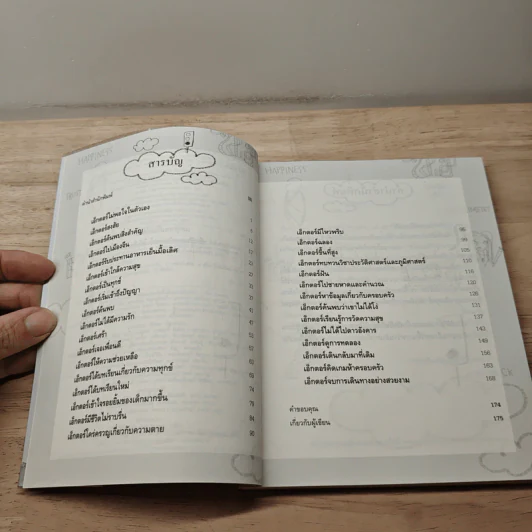 HAPPINESS
สารบัญ
คำนำสำนักพิมพ์
เฮ็กเตอร์ไม่พอใจในตัวเอง
เฮ็กเตอร์สงสัย
เฮ็กเตอร์ค้นพบสิ่งสำคัญ
เฮ็กเตอร์ไปเมืองจีน
เฮ็กเตอร์รับประทานอาหารเย็นมื้อเลิศ
เฮ็กเตอร์เข้าใกล้ความสุข
เฮ็กเตอร์เป็นทุกข์
เฮ็กเตอร์เริ่มเข้าถึงปัญญา
เฮ็กเตอร์ค้นพบ
เฮ็กเตอร์ไม่ได้มีความรัก
เฮ็กเตอร์เศร้า
เฮ็กเตอร์เจอเพื่อนดี
เฮ็กเตอร์ให้ความช่วยเหลือ
เฮ็กเตอร์ได้บทเรียนเกี่ยวกับความทุกข์
เฮ็กเตอร์ได้บทเรียนใหม่ 74
เฮ็กเตอร์เข้าใจรอยยิ้มของเด็กมากขึ้น 79
เฮ็กเตอร์มีชีวิตไม่ราบรื่น 84
เฮ็กเตอร์ใคร่ครวญเกี่ยวกับความตาย 90
HAPPINESS
เฮ็กเตอร์มีไหวพริบ 95
เฮ็กเตอร์ฉลอง 99
เฮ็กเตอร์ขึ้นที่สูง 105
เฮ็กเตอร์ทบทวนวิชาประวัติศาสตร์และภูมิศาสตร์ 110
เฮ็กเตอร์ฝัน 116
เฮ็กเตอร์ไปชายหาดและคำนวณ
เฮ็กเตอร์หาข้อมูลเกี่ยวกับครอบครัว
เฮ็กเตอร์ค้นพบว่าเขาไม่ได้โง่ 131
เฮ็กเตอร์เรียนรู้การวัดความสุข 137
เฮ็กเตอร์ไม่ได้ไปดาวอังคาร 143
เฮ็กเตอร์ดูการทดลอง
เฮ็กเตอร์เดินกลับมาที่เดิม 156
เฮ็กเตอร์คิดเกมห้าครอบครัว 163
เฮ็กเตอร์จบการเดินทางอย่างสวยงาม 168
คำขอบคุณ 174
เกี่ยวกับผู้เขียน 175